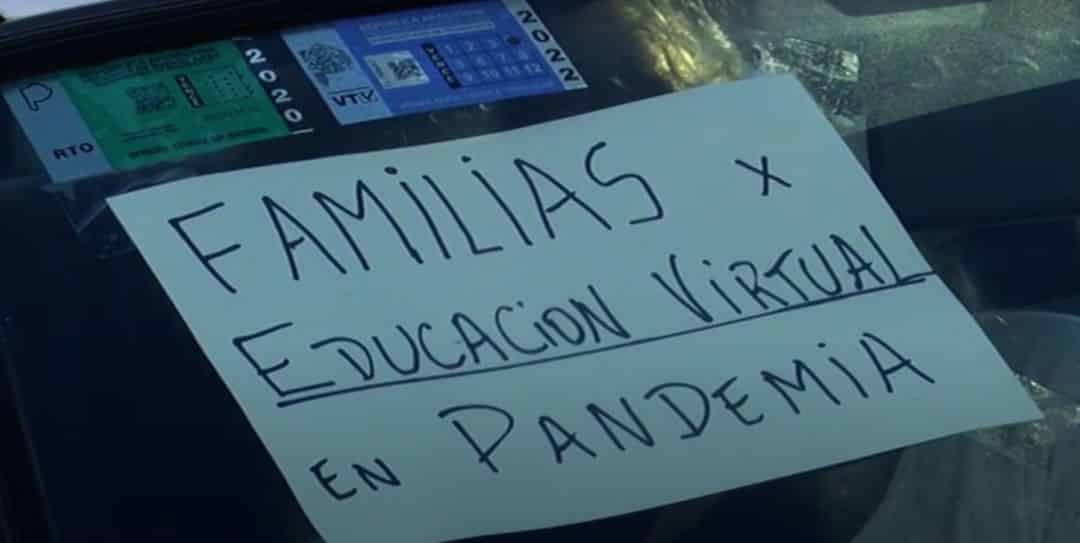 P
RTO
2020
VTV
1 2 3
9 10 11 12
2022
FAMILIAS x
EDUCACION VIRTUAL
EN PANDEMIA